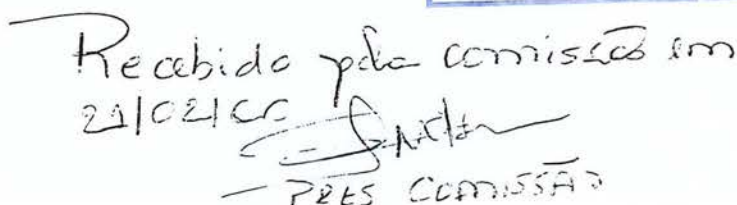 Recebido pela comissão em
21/02/
- PRES COMISSÃO